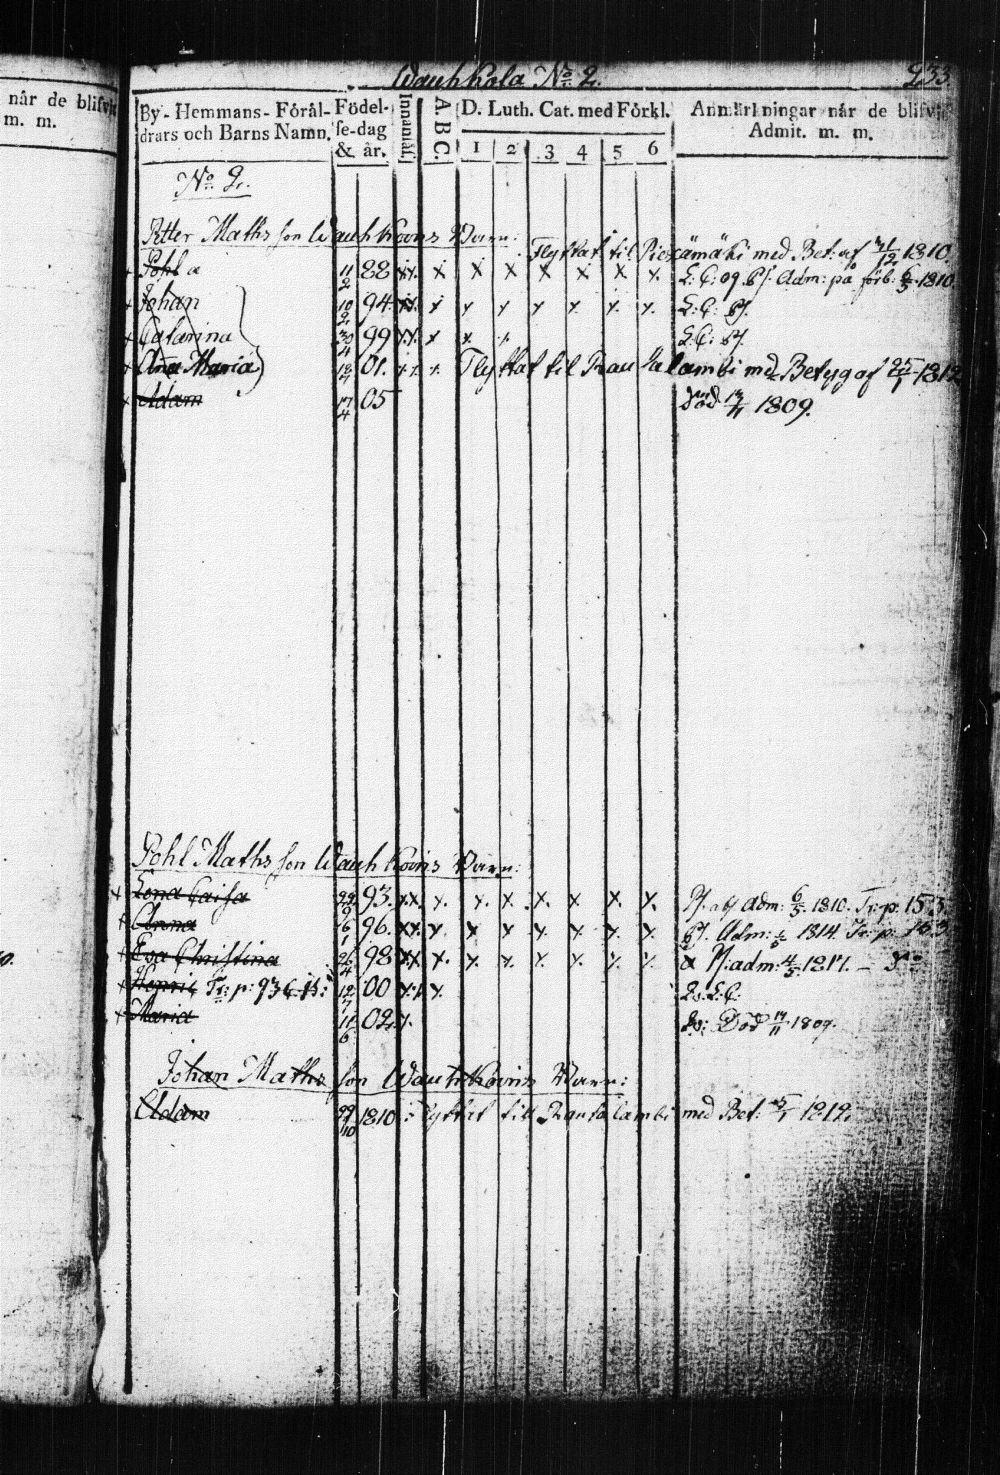 Wauhkola No. 2. 933.
når de blifvit
m. m.
By- Hemmans- Föräl-
drars och Barns Namn.
Födel-
se-dag
& år.
Innantil.
A. B. C.
D. Luth. Cat. med Förkl.
1 2 3 4 5 6
Anmärkningar når de blifvit
Admit. m. m.
No. 2.
Petter Mathsson Wauhkoins Barn:
Flyttat til Piexämäki med Bet: af 31/12 1810.
+ Pohl a 11/2 88 x x. x x x x x x x. L: C: og. Adm: på förb: 1810.
+ Johan 10/2 94. x x. x x x x x x. x. L: C:
+ Catarina 30/4 99 x x. x x. x. L: C:
+ Ana Maria 18/7 01. x x. x. Flyttat til Rautalambi med Betyg af 25/1 1812
x Adam 17/4 05 Död 1809.
Pohl Mathsson Wauhkoins Barn:
x Lena Caisa 93. x x. x. x. x. x x. x. x. x. Adm: 6/5. 1810. Tr: p: 153.
x Anna 6/1 96. x x. x. x x x. x. x. x. Adm: 1814. Tr: p: 153
x Eva Christina 26/4 98 x x x. x. x. x. x. x. x. adm: 4/5. 1817. – Do
x Henric Tr: p: 936. 12/7 00 x. x. x. L: C:
x Maria 11/6 02. x. Död 17/11 1809.
Johan Mathsson Wauhkoins Barn:
Adam 29/10 1810. Flyttat till Rautalambi med Bet: 1812.